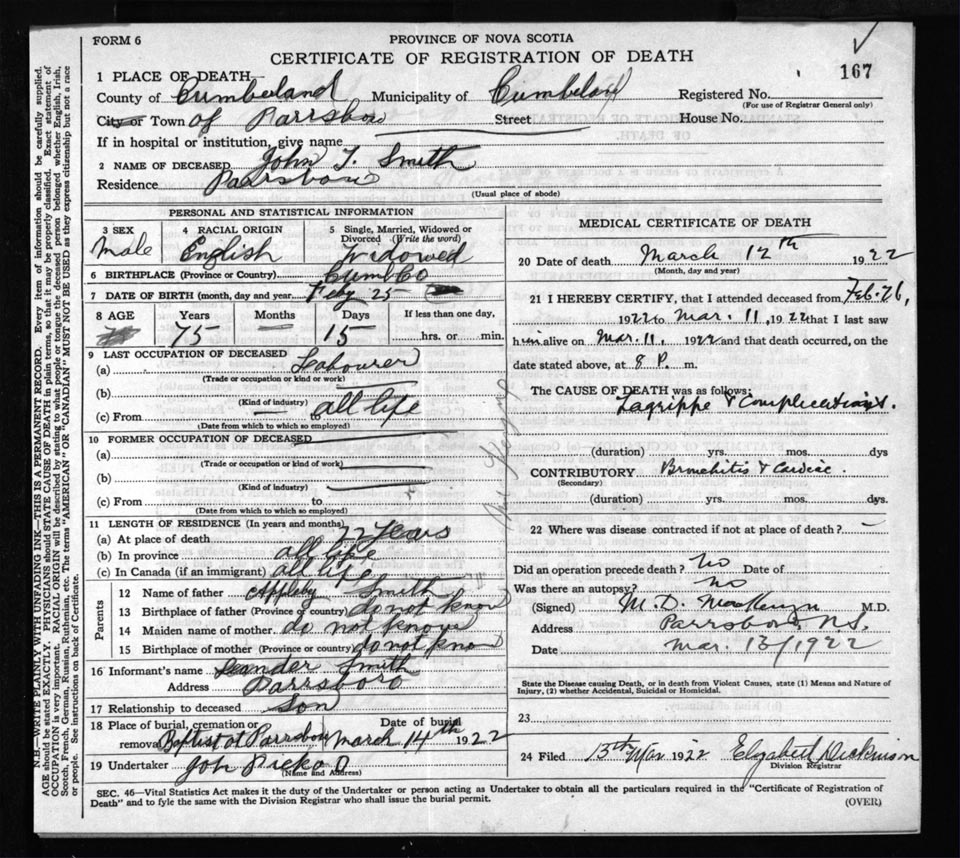 FORM 6
PROVINCE OF NOVA SCOTIA
CERTIFICATE OF REGISTRATION OF DEATH
167
1 PLACE OF DEATH
County of Cumberland Municipality of Cumbeland Registered No.
(For use of Registrar General only)
City or Town of Parrsboro Street House No.
If in hospital or institution, give name
2 NAME OF DECEASED John T. Smith
Residence Parrsboro
(Usual place of abode)
PERSONAL AND STATISTICAL INFORMATION
3 SEX 4 RACIAL ORIGIN 5 Single, Married, Widowed or Divorced (Write the word)
Male English Widowed
6 BIRTHPLACE (Province or Country) Cumb Co
7 DATE OF BIRTH (month, day and year) Feby 25
8 AGE Years Months Days If less than one day,
75 — 15 hrs. or min.
9 LAST OCCUPATION OF DECEASED
(a) Labourer
(Trade or occupation or kind of work)
(b)
(Kind of industry)
(c) From all life
(Date from which to which so employed)
10 FORMER OCCUPATION OF DECEASED
(a)
(Trade or occupation or kind of work)
(b)
(Kind of industry)
(c) From to
(Date from which to which so employed)
11 LENGTH OF RESIDENCE (In years and months)
(a) At place of death years
(b) In province all life
(c) In Canada (if an immigrant) all life
Parents
12 Name of father Appleby Smith
13 Birthplace of father (Province or country) do not know
14 Maiden name of mother do not know
15 Birthplace of mother (Province or country) do not know
16 Informant's name Leander Smith
Address Parrsboro
17 Relationship to deceased Son
18 Place of burial, cremation or removal Baptist at Parrsboro Date of burial March 14th 1922
19 Undertaker Joh
(Name and Address)
MEDICAL CERTIFICATE OF DEATH
20 Date of death March 12th 1922
(Month, day and year)
21 I HEREBY CERTIFY, that I attended deceased from Feb. 26,
1922 to Mar. 11, 1922 that I last saw
him alive on Mar. 11, 1922 and that death occurred, on the
date stated above, at 8 P. m.
The CAUSE OF DEATH was as follows:
Lagrippe & Complications.
(duration) yrs. mos. dys
CONTRIBUTORY Bronchitis & Cardiac.
(Secondary)
(duration) yrs. mos. dys.
22 Where was disease contracted if not at place of death? —
Did an operation precede death? No Date of
Was there an autopsy? no
(Signed) M. D. MacKenzie M.D.
Address Parrsboro N.S.
Date Mar. 13/1922
State the Disease causing Death, or in death from Violent Causes, state (1) Means and Nature of
Injury, (2) whether Accidental, Suicidal or Homicidal.
23
24 Filed 13th Mar 1922 Elizabeth Dickinson
Division Registrar
SEC. 46—Vital Statistics Act makes it the duty of the Undertaker or person acting as Undertaker to obtain all the particulars required in the "Certificate of Registration of
Death" and to fyle the same with the Division Registrar who shall issue the burial permit.
(OVER)
N.B.—WRITE PLAINLY WITH UNFADING INK—THIS IS A PERMANENT RECORD. Every item of information should be carefully supplied.
AGE should be stated EXACTLY. PHYSICIANS should STATE CAUSE OF DEATH in plain terms, so that it may be properly classified. Exact statement of
OCCUPATION is very important. RACIAL ORIGIN will be described by stating to what people or tongue the deceased person belonged whether English, Irish,
Scotch, French, German, Russian, Ruthenian, etc. The terms "AMERICAN" OR "CANADIAN" MUST NOT BE USED as they express citizenship but not a race
or people. See instructions on back of Certificate.